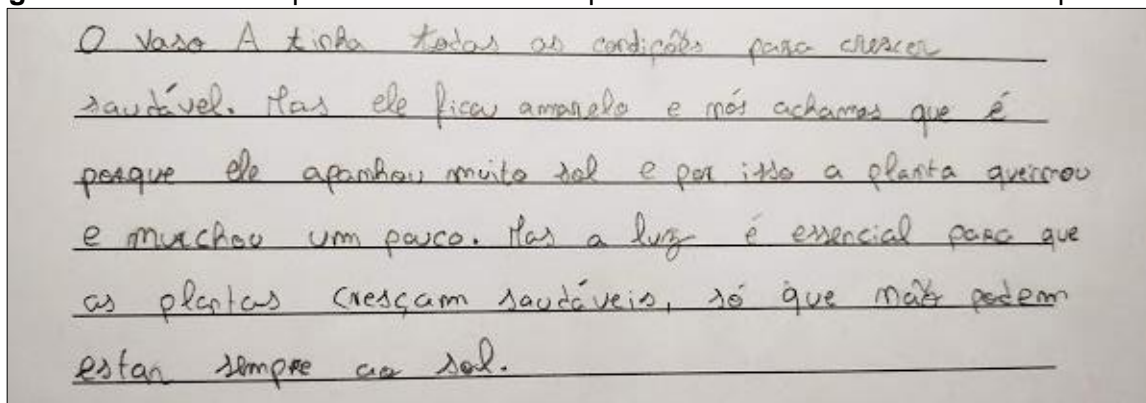 O Vaso A tinha todas as condições para crescer
saudável. Mas ele ficou amarelo e nós achamos que é
porque ele apanhou muito sol e por isso a planta queimou
e murchou um pouco. Mas a luz é essencial para que
as plantas cresçam saudáveis, só que não podem
estar sempre ao sol.